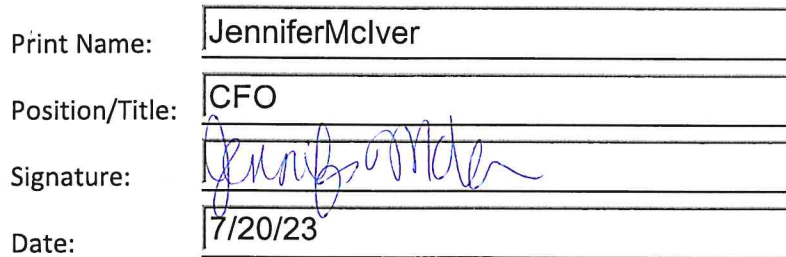 Print Name: JenniferMcIver
Position/Title: CFO
Signature: Jennifer McIver
Date: 7/20/23